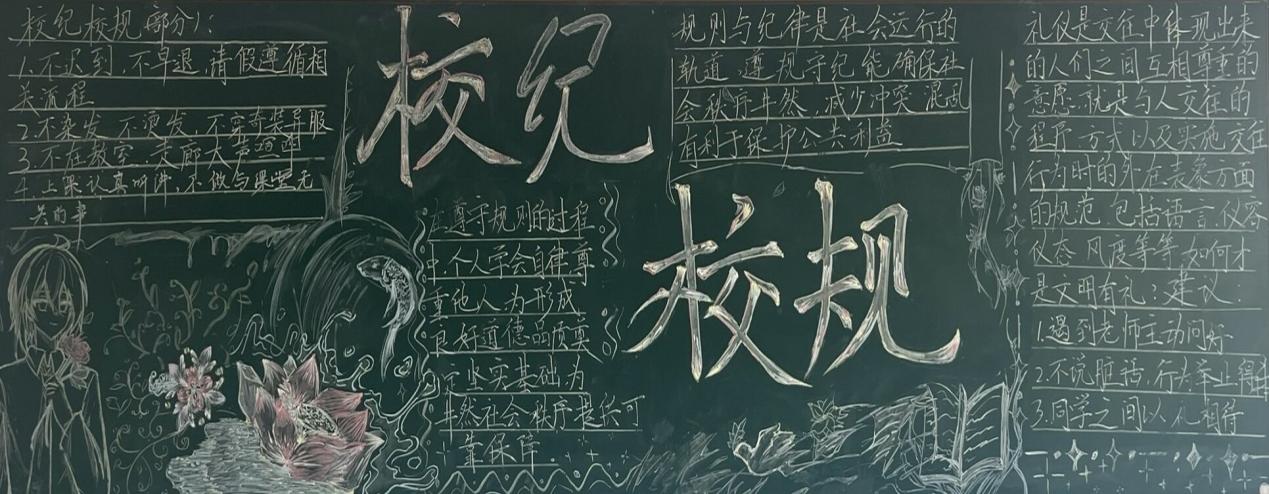 校纪校规(部分):
1.不迟到,不早退,请假遵循相
关流程
2.不染发,不烫发,不穿奇装异服
3.不在教室、走廊大声喧哗
4.上课认真听讲,不做与课堂无
关的事
校纪
校规
规则与纪律是社会运行的
轨道,遵规守纪能确保社
会秩序井然,减少冲突混乱
有利于保护公共利益
在遵守规则的过程
中,个人学会自律尊
重他人为形成
良好道德品质奠
定坚实基础,为
井然社会秩序提供可
靠保障
礼仪是交往中体现出来
的人们之间互相尊重的
意愿,就是与人交往的
程序、方式以及实施交往
行为时的外在表象方面
的规范,包括语言、仪容
仪态、风度等等,如何才
是文明有礼?建议:
1.遇到老师主动问好
2.不说脏话,行为举止得体
3.同学之间以礼相待